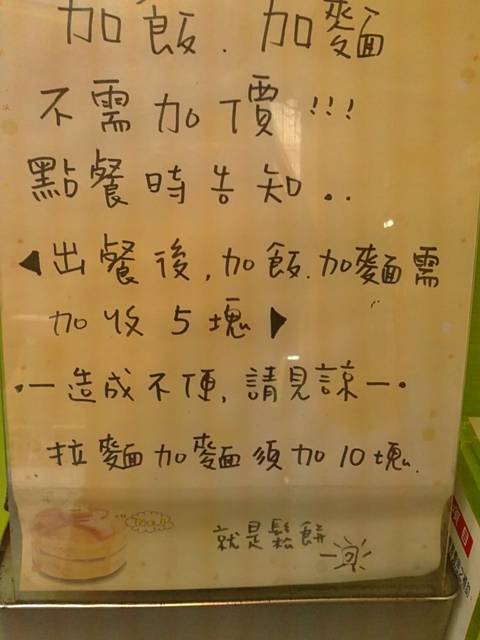 加飯.加麵
不需加價!!!
點餐時告知..
◀出餐後,加飯.加麵需
加收5塊▶
·一造成不便,請見諒一·
拉麵加麵須加10塊.
就是鬆餅